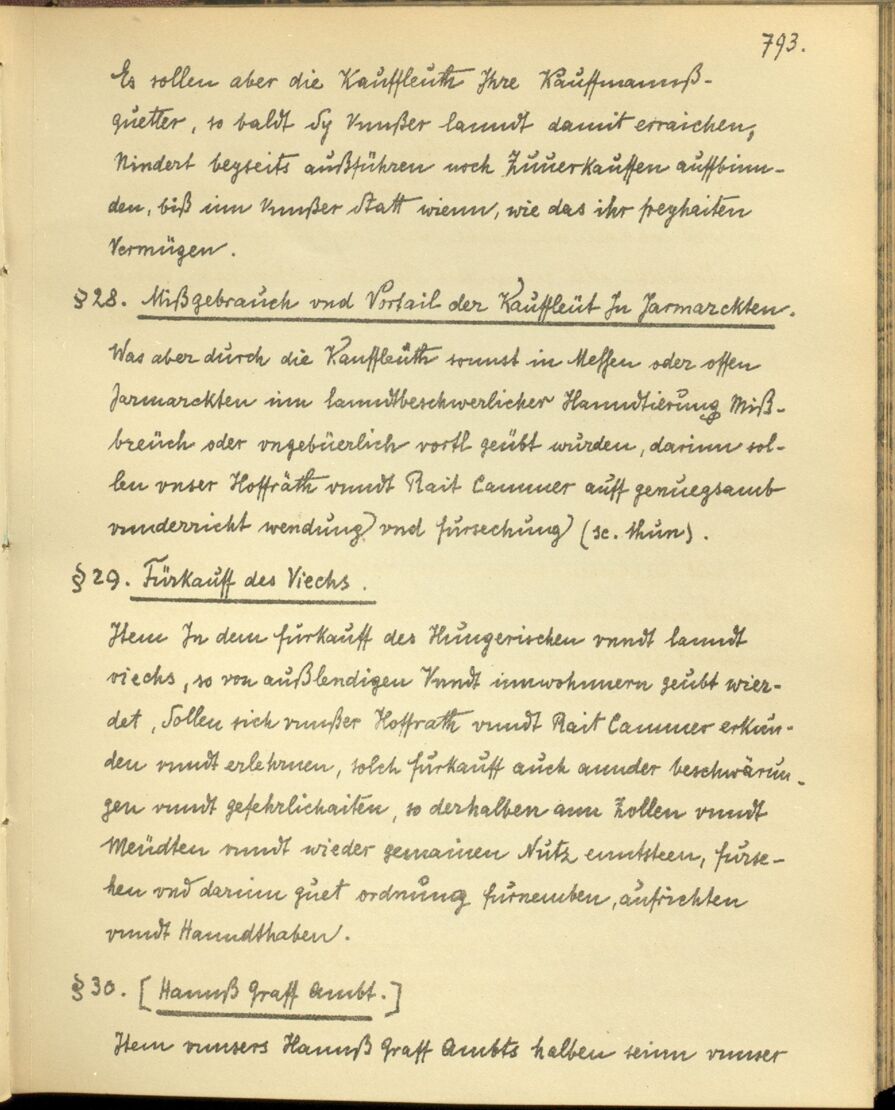 793.
Es sollen aber die Kauffleuth Ihre Kauffmannß-
guetter, so baldt Sy Vnnßer lanndt damit erraichen,
Nindert beyseits außführen noch Zuuerkauffen auffbinn-
den, biß inn Vnnßer Statt wienn, wie das ihr freyhaiten
Vermügen.
§ 28. Mißgebrauch vnd Vortail der Kauffleüt In Jarmarckten.
Was aber durch die Kauffleüth sonnst in Messen oder offen
Jarmarckten inn lanndtbeschwerlicher Hanndtierung Miß-
breüch oder vngebüerlich vortl geübt wurden, darinn sol-
len vnser Hoffräth vnndt Rait Cammer auff genuegsamb
vnnderricht wendung vnd fursechung (sc. thun).
§ 29. Fürkauff des Viechs.
Item In dem furkauff des Hungerischen vnndt lanndt
viechs, so von außlendigen Vnndt innwohnnern geubt wier-
det, Sollen sich vnnßer Hoffrath vnndt Rait Cammer erkun-
den vnndt erlehrnen, solch furkauff auch annder beschwärun-
gen vnndt gefehrlichaiten, so derhalben ann Zollen vnndt
Meüdten vnndt wieder gemainen Nutz enntsteen, furse-
hen vnd darinn guet ordnung furnemben, aufrichten
vnndt Hanndthaben.
§ 30. [Hannß Graff Ambt.]
Item vnnsers Hannß Graff Ambts halben seinn vnnser